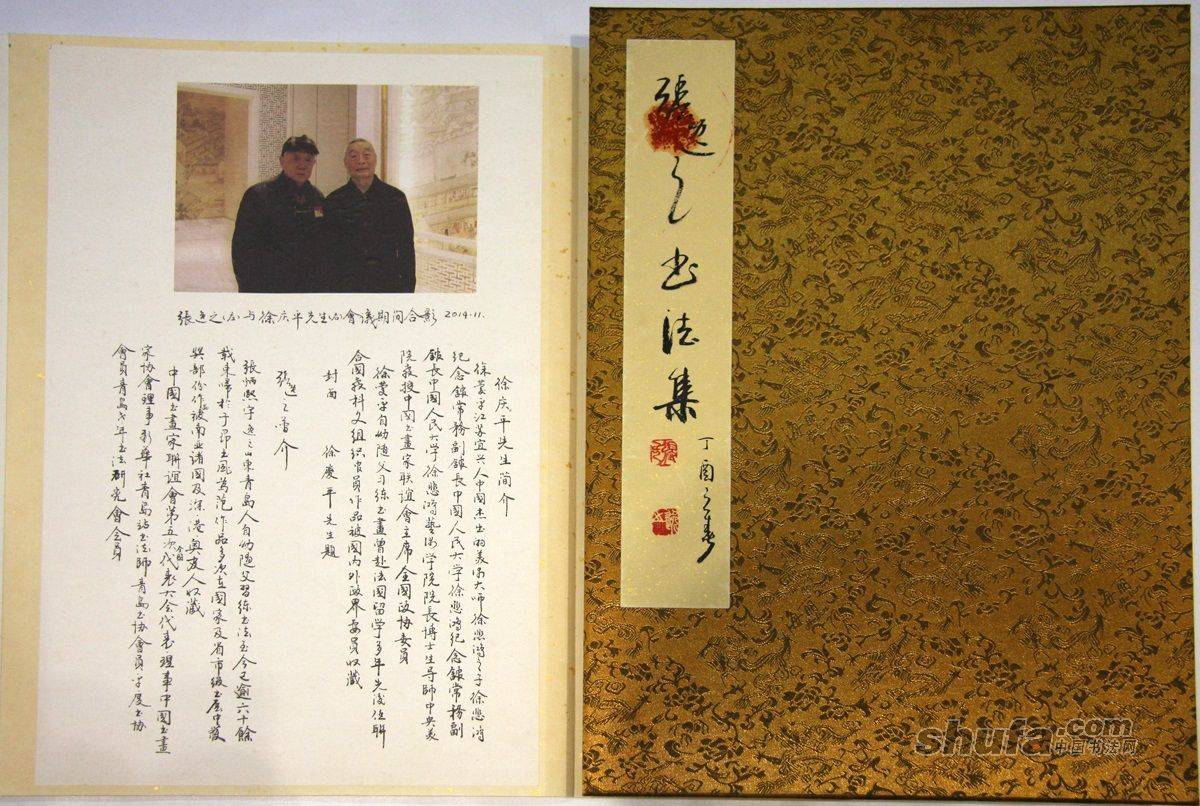 張迤之书法集
丁酉之春
張迤之(左)与徐庆平先生(右)會議期间合影 2014.11.
徐庆平先生简介
徐蒙字江苏宜兴人中國杰出的美术大师徐悲鸿之子徐悲鸿
纪念館常務副館長中國人民大学徐悲鸿纪念館常務副
館長中國人民大学徐悲鸿藝術学院院長博士生导師中央美
院教授中國书畫家联誼會主席全國政协委員
徐蒙字自幼随父习练书畫曾赴法國留学多年先後任聯
合國教科文组织官員作品被國内外政界要員收藏
封面 徐慶平先生題
張迤之简介
張炳熙字迤之山東青島人自幼随父習练书法至今已逾六十餘
載朱啼於于印书風為范作品多次在國家及省市级书展中獲
獎部份作品被南亚諸國及深港奥友人收藏
中國书畫家聯誼會第五次全國代表大会代表理事中國书畫
家协會理事新華社青島站书法師青島书协會員字展书协
會員青島老年书法研究會会員
shufa.com
中国书法网